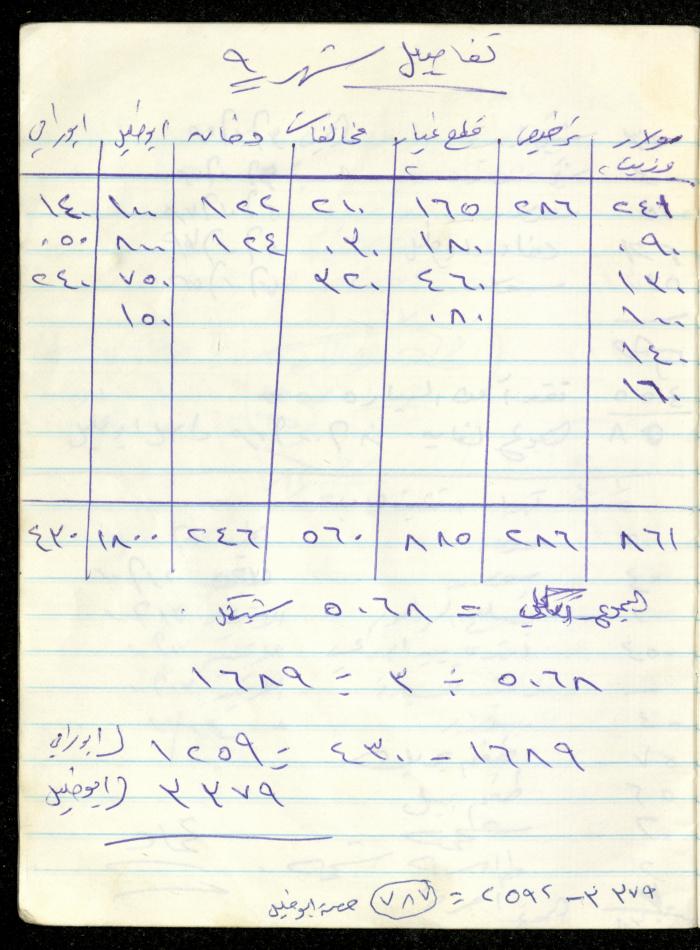 تفاصيل شهر ٩
سولار قطع غيار مخالفات دخان ابوخليل ابوراني
وزيت
٢٤١ ٢٨٦ ١٦٥ ٢١٠ ١٢٢ ١٠٠ ١٤٠
٩٠ ١٨٠ ٠٣٠ ١٢٤ ٨٠٠ ٠٥٠
١٣٠ ٤٦٠ ٣٢٠ ٧٥٠ ٢٤٠
١٠٠ ٠٨٠ ١٥٠
١٤٠
١٦٠
٨٦١ ٢٨٦ ٨٨٥ ٥٦٠ ٢٤٦ ١٨٠٠ ٤٣٠
المجموع الكلي = ٥٠٦٨ شيكل
٥٠٦٨ ÷ ٣ = ١٦٨٩
١٦٨٩ - ٤٣٠ = ١٢٥٩ (ابوراني
٣٣٧٩ (ابوخليل
٣٣٧٩ - ٢٥٩٢ = ٧٨٧ حصة ابوخليل